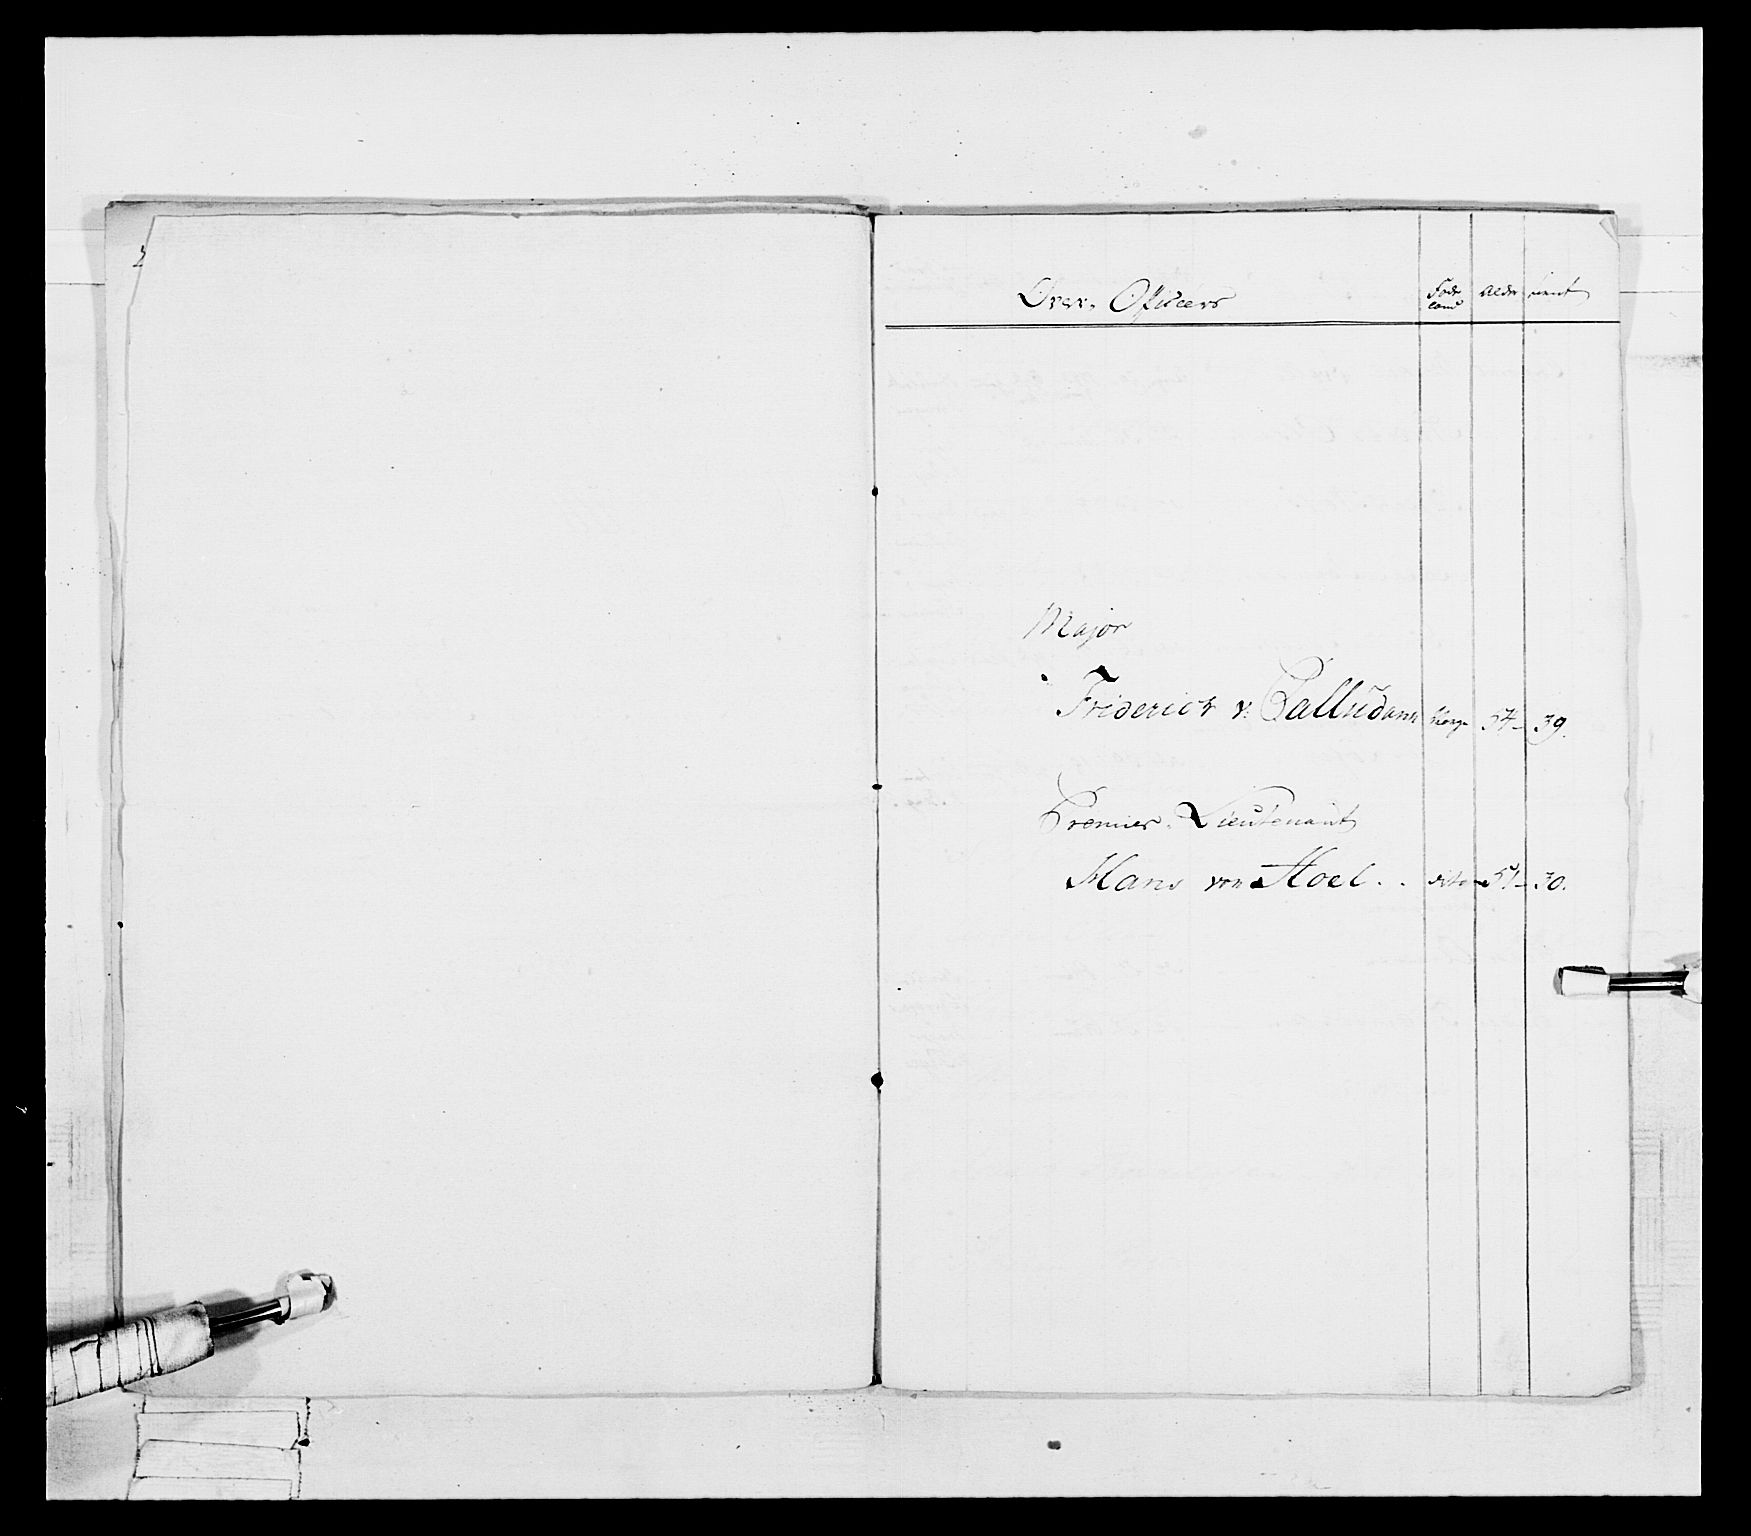 Over. Officiers Føde land Alder tient
Major
Friderich v: Palludann Norge 54 39.
Premier-Lieutenant
Hans von Hoel.. dito 51 30.